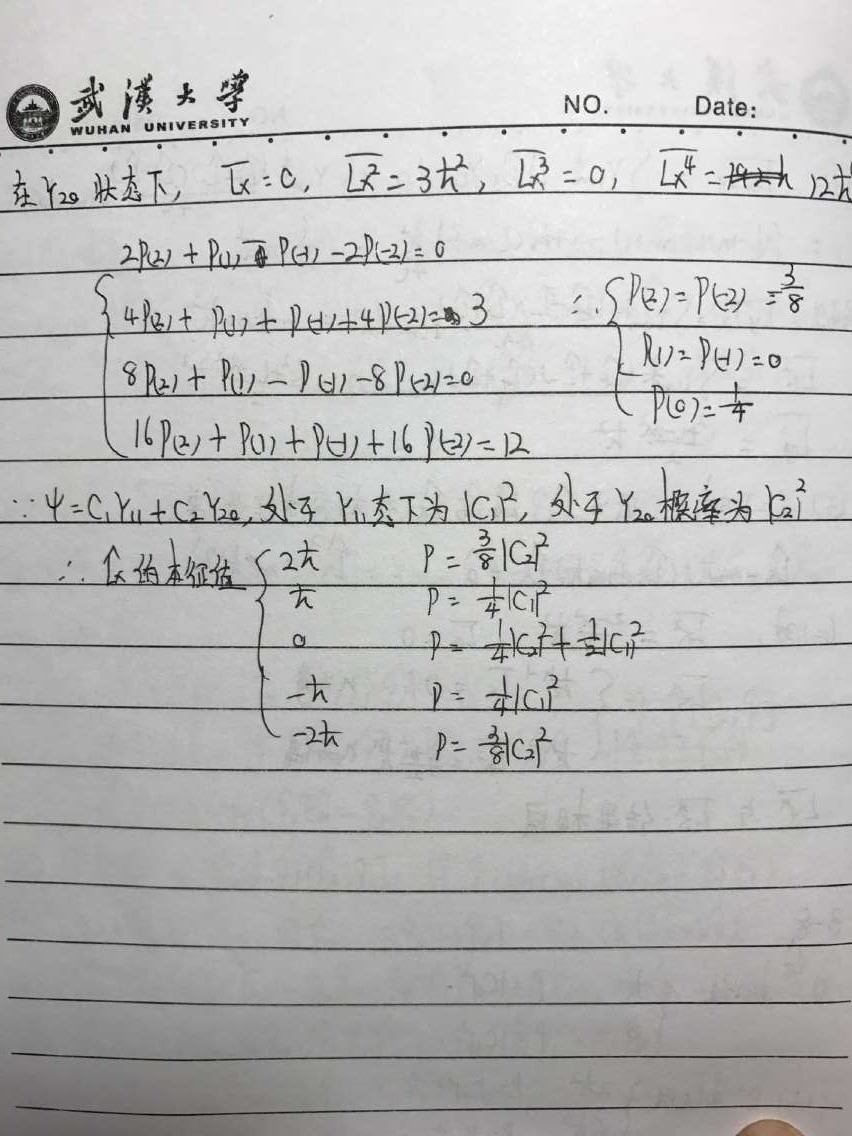 武漢大學
WUHAN UNIVERSITY
NO. Date:
在Y₂₀状态下, L̅x̅=0, L̅x̅²=3ħ², L̅x̅³=0, L̅x̅⁴= 12ħ⁴
2P(2)+P(1)-P(-1)-2P(-2)=0
4P(2)+P(1)+P(-1)+4P(-2)=3
8P(2)+P(1)-P(-1)-8P(-2)=0
16P(2)+P(1)+P(-1)+16P(-2)=12
∴ { P(2)=P(-2)=3/8
P(1)=P(-1)=0
P(0)=1/4
∵ψ=C₁Y₁₁+C₂Y₂₀, 处于Y₁₁态下为|C₁|², 处于Y₂₀概率为|C₂|²
∴ L̂x的本征值 { 2ħ P=3/8|C₂|²
ħ P=1/4|C₁|²
0 P=1/4|C₂|²+1/2|C₁|²
-ħ P=1/4|C₁|²
-2ħ P=3/8|C₂|²